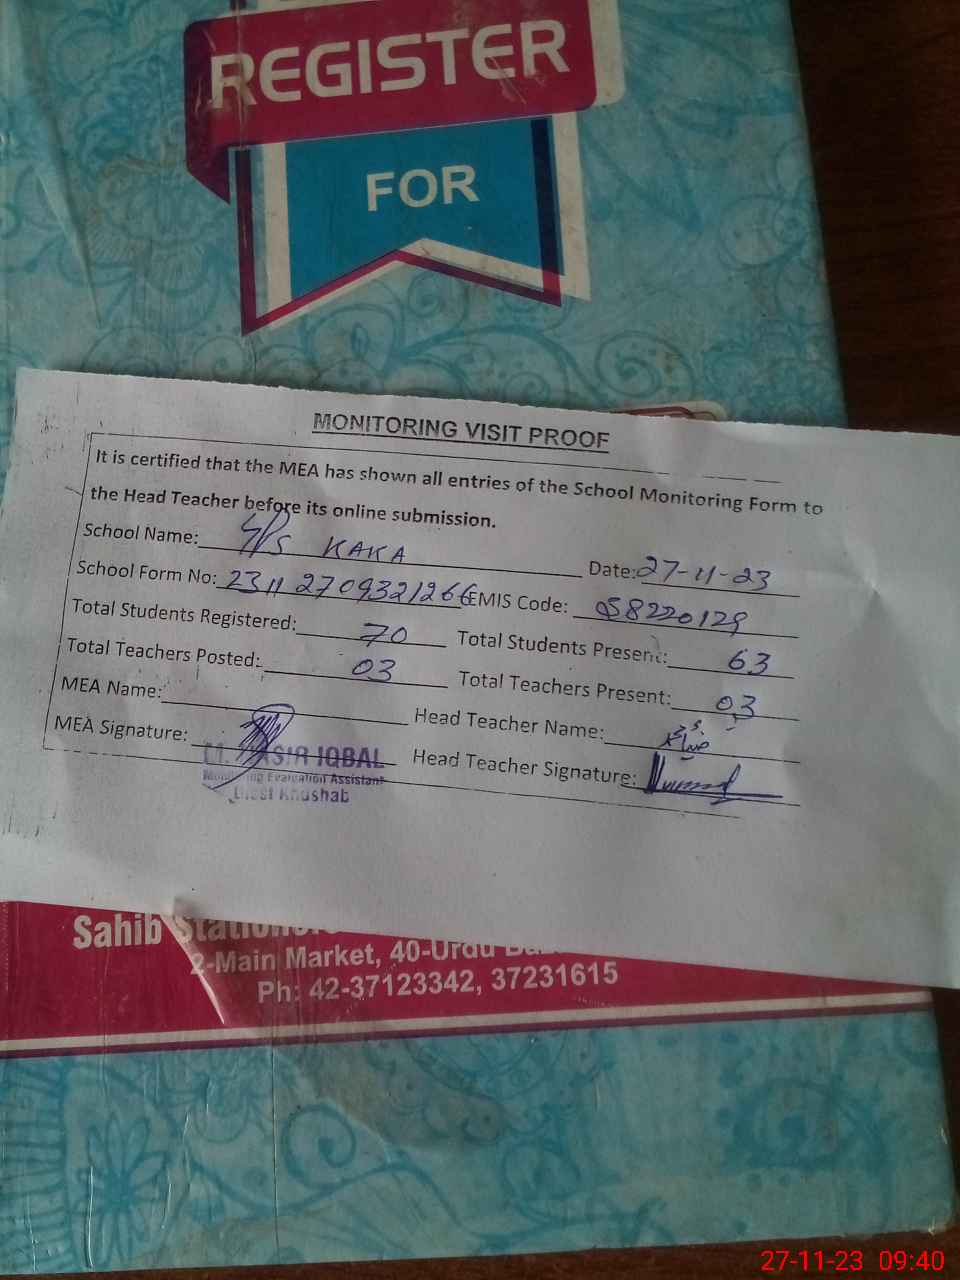 REGISTER
FOR
MONITORING VISIT PROOF
It is certified that the MEA has shown all entries of the School Monitoring Form to
the Head Teacher before its online submission.
School Name: GPS KAKA Date: 27-11-23
School Form No: 2311270932126 EMIS Code: 38220129
Total Students Registered: 70 Total Students Present: 63
Total Teachers Posted: 03 Total Teachers Present: 03
MEA Name: Head Teacher Name:
MEA Signature: Head Teacher Signature:
IQBAL
Monitoring Evaluation Assistant
Distt Khushab
Sahib
2-Main Market, 40-Urdu
Ph: 42-37123342, 37231615
27-11-23 09:40